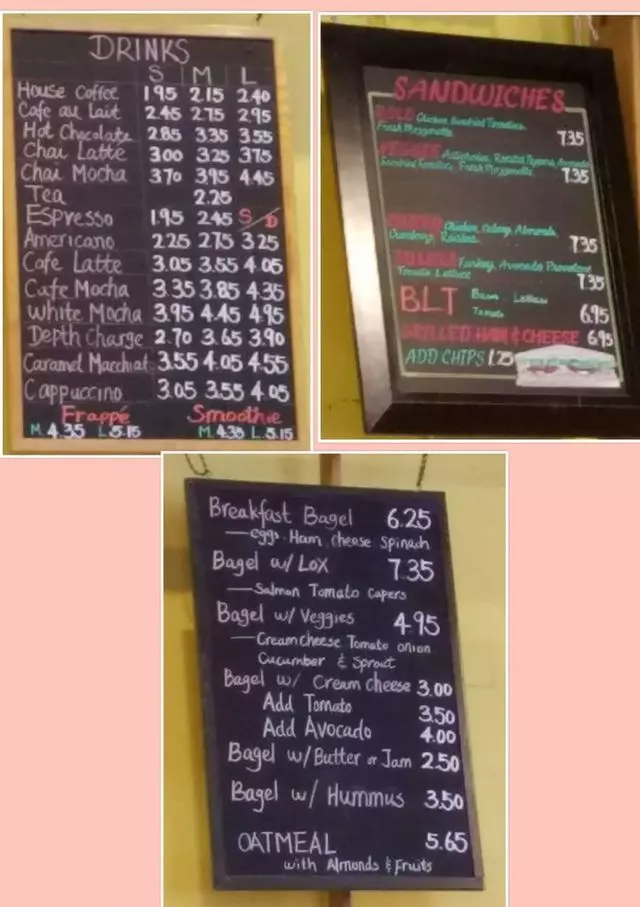 DRINKS
S M L
House Coffee 1.95 2.15 2.40
Cafe au Lait 2.45 2.75 2.95
Hot Chocolate 2.85 3.35 3.55
Chai Latte 3.00 3.25 3.75
Chai Mocha 3.70 3.95 4.45
Tea 2.25
Espresso 1.95 2.45 S/D
Americano 2.25 2.75 3.25
Cafe Latte 3.05 3.55 4.05
Cafe Mocha 3.35 3.85 4.35
White Mocha 3.95 4.45 4.95
Depth Charge 2.70 3.65 3.90
Caramel Macchiat 3.55 4.05 4.55
Cappuccino 3.05 3.55 4.05
Frappé Smoothie
M. 4.35 L 5.15 M. 4.35 L 5.15
SANDWICHES
Chicken, Sundried Tomatoes,
Fresh Mozzarella 7.35
VEGGIE Artichokes, Roasted Peppers, Avocado
Sundried Tomatoes, Fresh Mozzarella 7.35
Chicken, Celery, Almonds,
Cranberry, Raisins 7.35
Turkey, Avocado Provolone
Tomato Lettuce 7.35
BLT Bacon Lettuce
Tomato 6.95
GRILLED HAM & CHEESE 6.95
ADD CHIPS 1.25
Breakfast Bagel 6.25
—eggs. Ham cheese Spinach
Bagel w/ Lox 7.35
—Salmon Tomato capers
Bagel w/ Veggies 4.95
—Creamcheese Tomato onion
Cucumber & Sprout
Bagel w/ Cream cheese 3.00
Add Tomato 3.50
Add Avocado 4.00
Bagel w/Butter or Jam 2.50
Bagel w/ Hummus 3.50
OATMEAL 5.65
with Almonds & Fruits